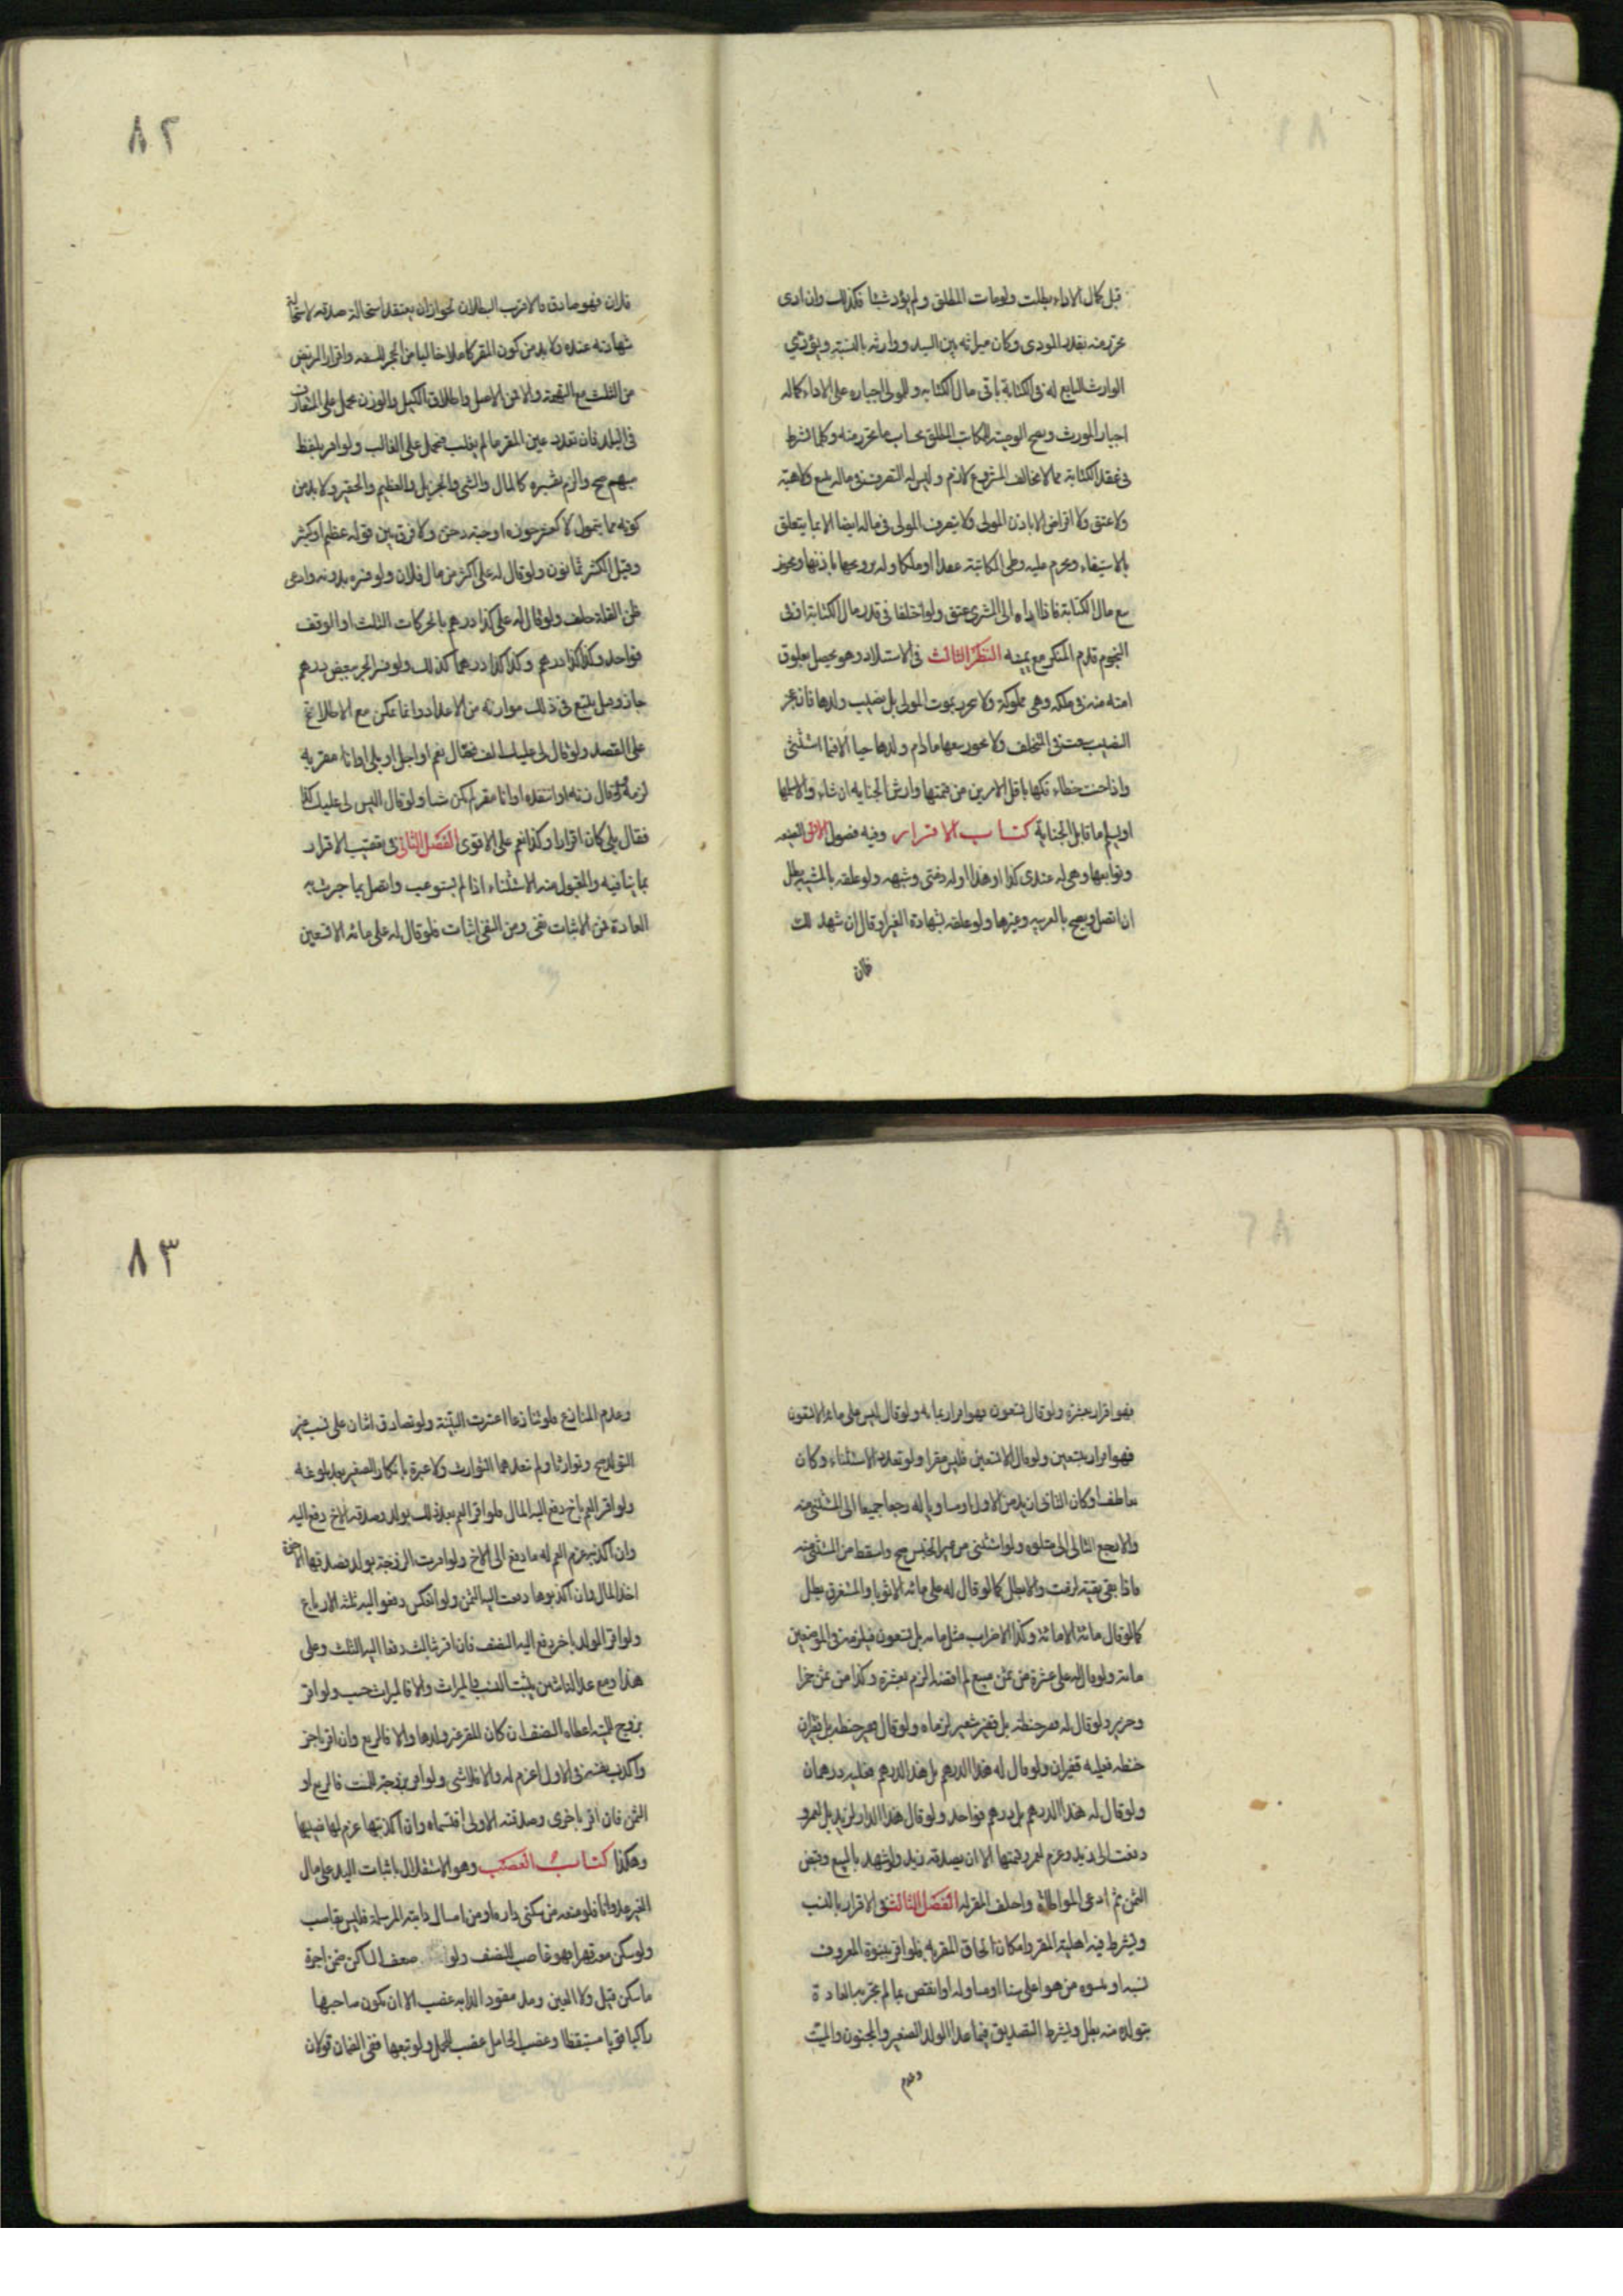 قبل كمال الاداء بطلت ولومات المطلق ولم يؤد شيئا فكذلك وان ادى
تحرر منه بقدر المودى وكان ميراثه بين السيد ووارثه بالنسبة ويؤدي
الوارث التابع له فى الكتابة باقى مال الكتابه وللمولى اجباره على الاداء كماله
اجبار المورث ويصح الوصية للمكاتب المطلق بحساب ما تحرر منه وكلما اشترط
فى عقد الكتابة مما لا يخالف المشروع لازم وليس له التصرف فى ماله ببيع ولا هبة
ولا عتق ولا اقراض الا باذن المولى ولا يتصرف المولى فى ماله ايضا الا بما يتعلق
بالاستيفاء ويحرم عليه وطى المكاتبة عقدا او ملكا وله تزويجها باذنها ويجوز
بيع مال الكتابة فاذا اداه الى المشترى عتق ولو اختلفا فى قدر مال الكتابة او فى
النجوم قدم المنكر مع يمينه النظر الثالث فى الاستيلاد وهو يحصل بعلوق
امته منه فى ملكه وهى مملوكة ولا تتحرر بموت المولى بل بنصيب ولدها فان عجز
النصيب سعت فى المتخلف ولا يجوز بيعها مادام ولدها حيا الا فيما استثنى
واذا جنت خطاء فكها باقل الامرين من قيمتها وارش الجنايه ان شاء والا سلمها
او يسلم ما قابل الجناية كتاب الاقرار وفيه فصول الاول الصيغه
وتوابعها وهى له عندى كذا او هذا او له فى ذمتى وشبهه ولو علقه بالمشية بطل
ان اتصل ويصح بالعربيه وغيرها ولو علقه بشهادة الغير او قال ان شهد لك
فلان
٨٢
فلان فهو صادق فالاقرب البطلان لجواز ان يعتقد استحالة صدقه لاستحالة
شهادته عنده ولا بد من كون المقر كاملا خاليا من الحجر للسفه واقرار المريض
من الثلث مع التهمة والا فمن الاصل واطلاق الكيل والوزن يحمل على المتعارف
فى البلد فان تعدد عين المقر ما لم يغلب فيحمل على الغالب ولو اقر بلفظ
مبهم صح والزم تفسيره كالمال والشى والجزيل والعظيم والحقير ولا بد من
كونه مما يتمول لا كقشر جوزه او حبة دخن ولا فرق بين قوله عظيم او كثير
وقيل الكثير ثمانون ولو قال له على اكثر من مال فلان ولو فسره بدونه وادعى
ظن القلة حلف ولو قال له على كذا درهم بالحركات الثلث او الوقف
فواحد وكذا كذا درهم وكذا وكذا درهما كذلك ولو فسر الجر ببعض درهم
جاز وقيل يتبع فى ذلك موازنه من الاعداد وانما يمكن مع الاطلاع
على القصد ولو قال لى عليك الف فقال نعم او اجل او بلى او انا مقر به
لزمه ولو قال زنه او انتقده او انا مقر لم يكن شيا ولو قال اليس لى عليك كذا
فقال بلى كان اقرارا وكذا نعم على الاقوى الفصل الثانى فى تعقيب الاقرار
بما ينافيه والمقبول منه الاستثناء اذا لم يستوعب واتصل بما جرت به
العادة فمن الاثبات نفى ومن النفى اثبات فلو قال له على مائه الا تسعين
فهو اقرار بعشرة ولو قال تسعون فهو اقرار بمائه ولو قال ليس على مائة الا تسعون
فهو اقرار بتسعين ولو قال الا تسعين فليس مقرا ولو تعدد الاستثناء وكان
بعاطف او كان الثانى ازيد من الاول او مساويا له رجعا جميعا الى المستثنى منه
والا رجع التالى الى متلوه ولو استثنى من غير الجنس صح واسقط من المستثنى منه
فاذا بقى بقية لزمت والا بطل كما لو قال له على مائه الا ثوبا والمستغرق يبطل
كما لو قال مائة الا مائة وكذا الاضراب مثل مائه بل تسعون فيلزمه فى الموضعين
مائة ولو قال له على عشرة من ثمن مبيع لم اقبضه الزم بعشرة وكذا من ثمن خمر
او خنزير ولو قال له قفيز حنطة بل قفيز شعير لزماه ولو قال قفيز حنطه بل قفيزان
حنطه فعليه قفيزان ولو قال له هذا الدرهم بل هذا الدرهم فعليه درهمان
ولو قال له هذا الدرهم بل درهم فواحد ولو قال هذا الدار لزيد بل لعمرو
دفعت الى زيد وغرم لعمرو قيمتها الا ان يصدقه زيد ولو شهد بالبيع وقبض
الثمن ثم ادعى المواطاة واحلف المقر له الفصل الثالث فى الاقرار بالنسب
ويشترط فيه اهلية المقر وامكان الحاق المقر به فلو اقر ببنوة المعروف
نسبه او بنبوة من هو اعلى سنا او مساو له او انقص بما لم تجر به العادة
بتولده منه بطل ويشترط التصديق فيما عدا الولد الصغير والمجنون والميت
وعدم
٨٣
وعدم المنازع فلو تنازعا اعتبرت البينة ولو تصادق اثنان على نسب غير
التولد صح وتوارثا ولم تعدهما التوارث ولا عبرة بانكار الصغير بعد بلوغه
ولو اقر العم باخ دفع اليه المال فلو اقر العم بعد ذلك بولد وصدقه الاخ دفع اليه
وان اكذبه غرم العم له ما دفع الى الاخ ولو اقرت الزوجة بولد فصدقها الاخوة
اخذ المال وان اكذبوها دفعت اليه الثمن ولو انعكس دفعوا اليه ثلثه الارباع
ولو اقر الولد باخر دفع اليه النصف فان اقر ثالث دفعا اليه الثلث وعلى
هذا ومع عدالة اثنين يثبت النسب والميراث والا فالميراث حسب ولو اقر
بزوج للميته اعطاه النصف ان كان المقر غير ولدها والا فالربع وان اقر باخر
واكذب نفسه فى الاول اغرم له والا فلا شى ولو اقر بزوجة للميت فالربع او
الثمن فان اقر باخرى وصدقته الاولى اقتسماه وان اكذبتها غرم لها نصيبها
وهكذا كتاب الغصب وهو الاستقلال باثبات اليد على مال
الغير عدوانا فلو منعه من سكنى داره او من امساك دابته المرسلة فليس بغاصب
ولو سكن معه قهرا فهو غاصب للنصف ولو ضعف الساكن ضمن اجرة
ما سكن قيل ولا العين ومد مقود الدابه غصب الا ان يكون صاحبها
راكبا قويا مستيقظا وغصب الحامل غصب الحمل ولو تبعها ففى الضمان قولان